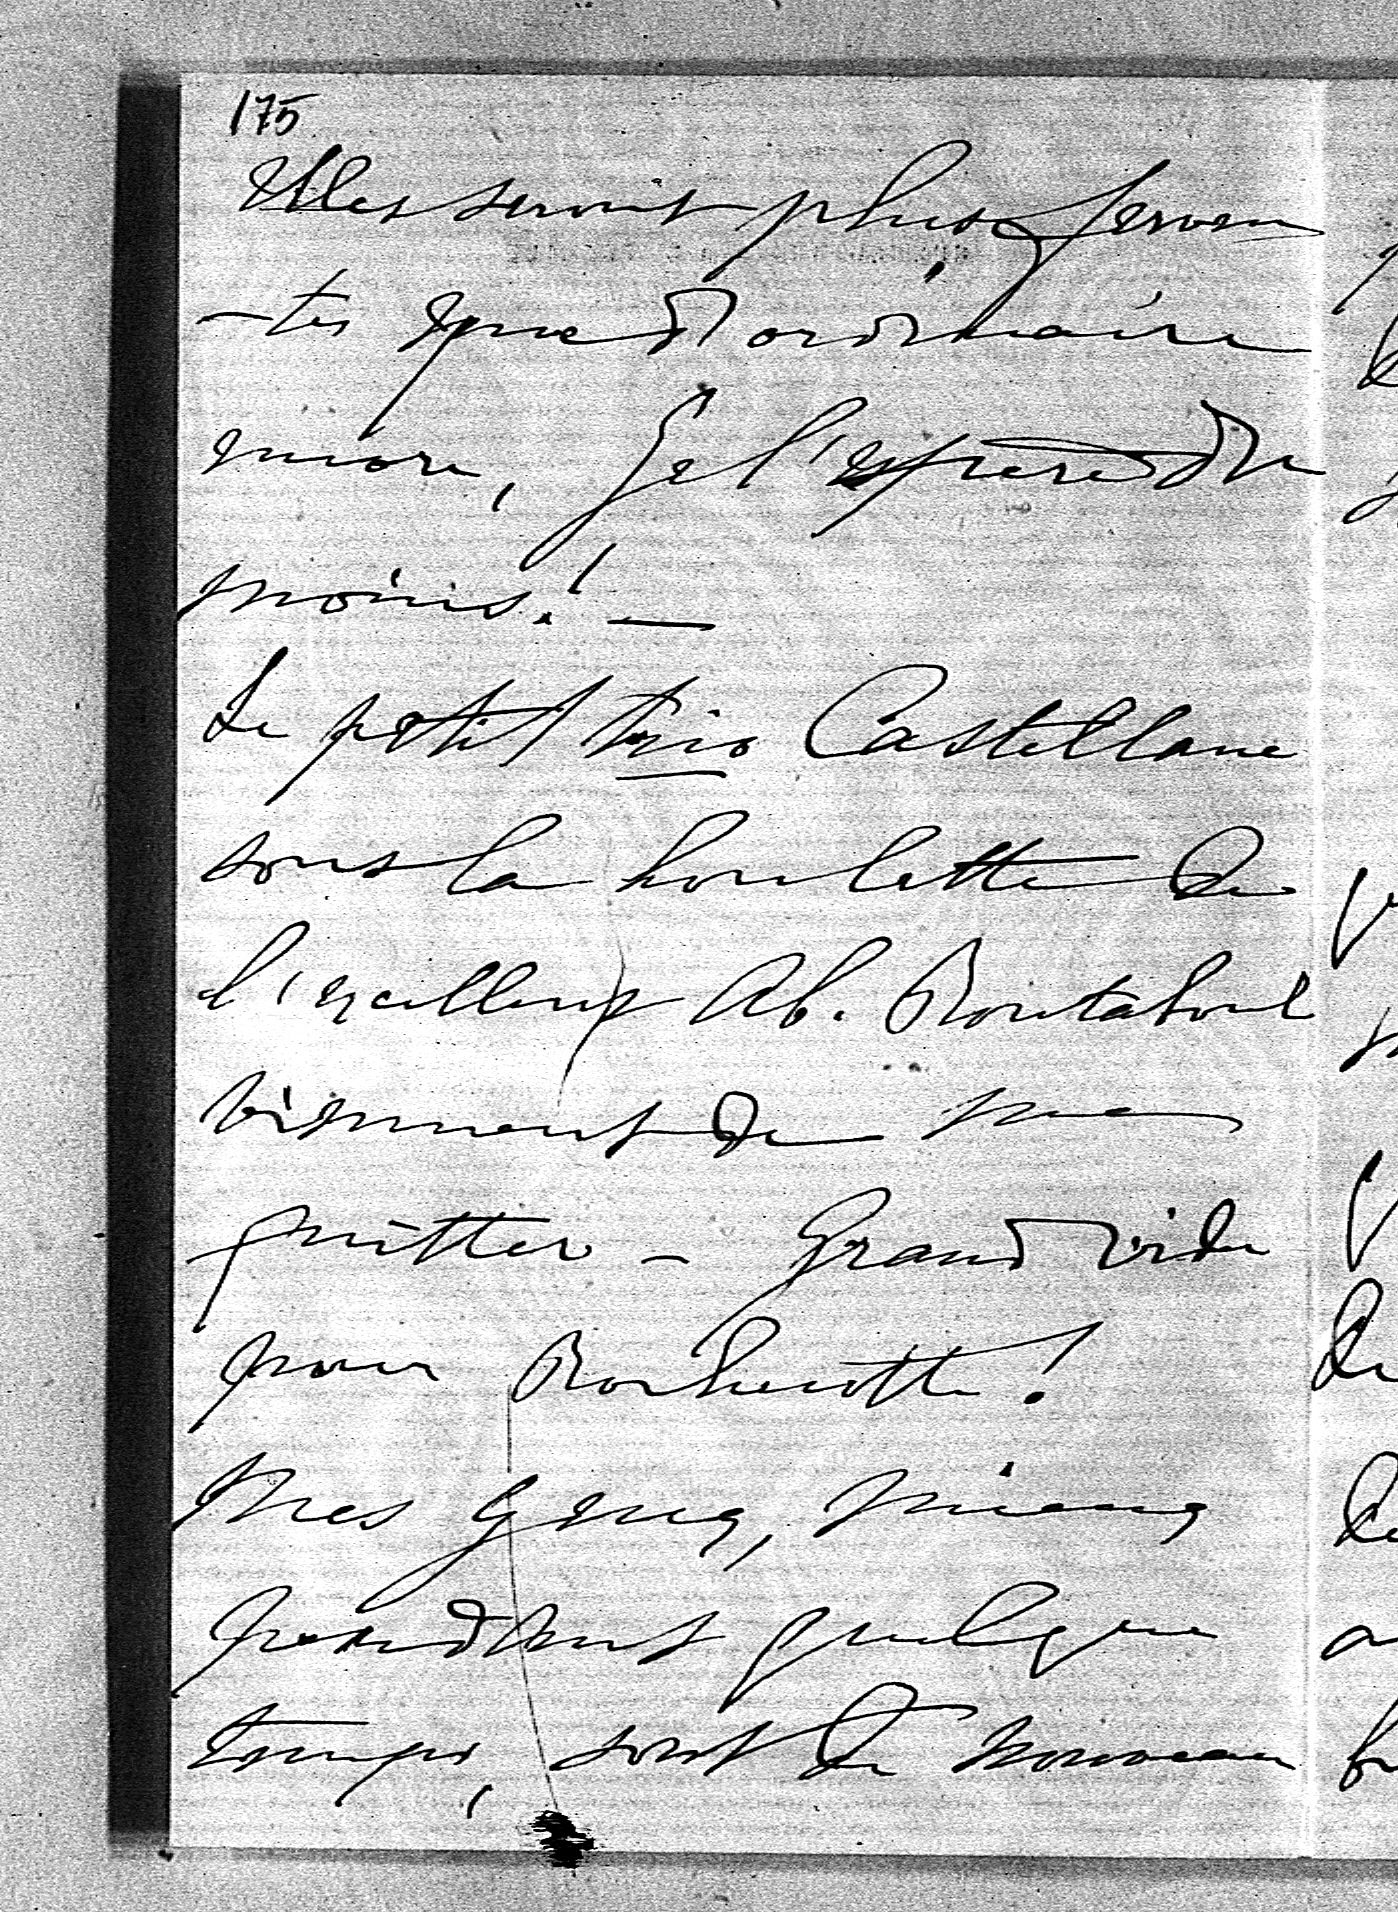 175
Elles seront plus ferven
-tes que d'ordinaire
encore, je l'espere du
moins! —
Le petit trio Castellane
sous la houlette de
l'excellent Ab. Boutaboul
viennent de me
quitter – Grand vide
pour Rochecotte!
Mes yeux, mieux
pendant quelque
temps, sont de nouveau